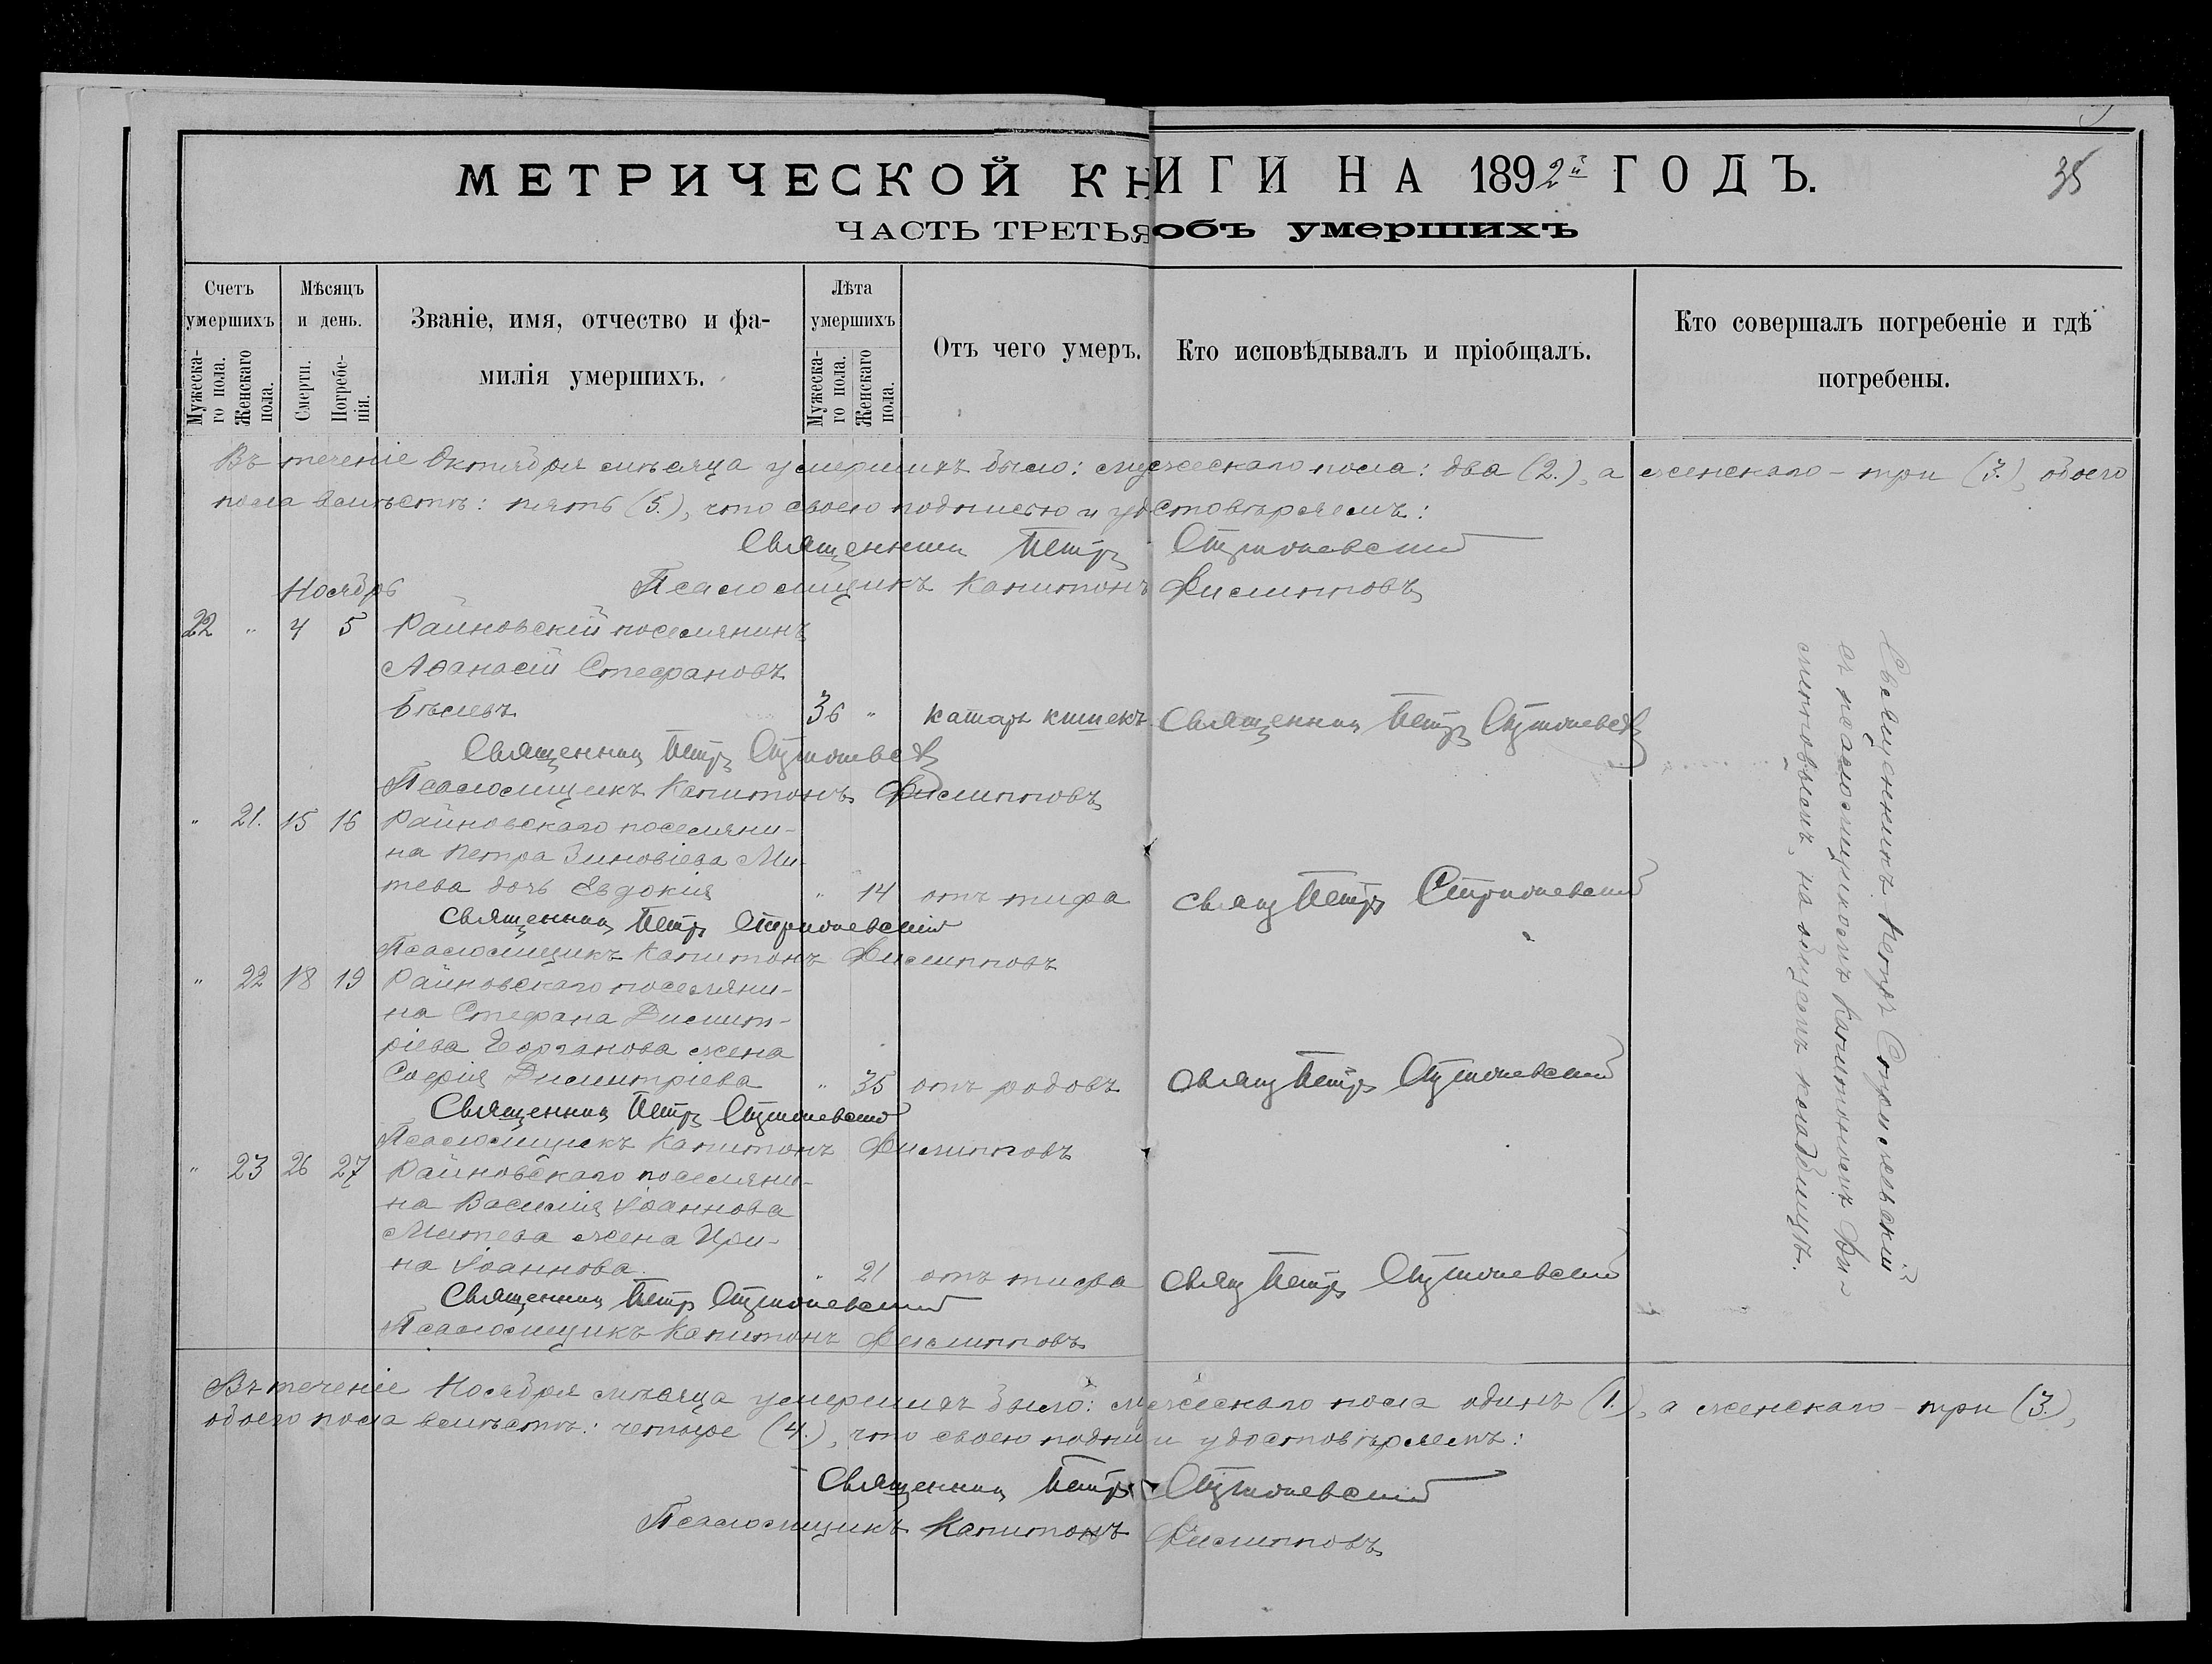 МЕТРИЧЕСКОЙ КНИГИ НА 1892й ГОДЪ.
35
ЧАСТЬ ТРЕТЬЯ объ умершихъ
Счетъ умершихъ
Мужеска-го пола.
Женскаго пола.
Мѣсяцъ и день.
Смерти.
Погребе-нія.
Званіе, имя, отчество и фа-
милія умершихъ.
Лѣта умершихъ
Мужеска-го пола.
Женскаго пола.
Отъ чего умеръ.
Кто исповѣдывалъ и пріобщалъ.
Кто совершалъ погребеніе и гдѣ
погребены.
Въ теченіе Октября мѣсяца умершихъ было: мужескаго пола: два (2.), а женскаго - три (3.), обоего
пола вмѣстѣ: пять (5.), что своею подписью и удостовѣряемъ:
Священник Петръ
Псаломщикъ Капитонъ Филипповъ
Ноябрь
22 " 4 5 Райновскій поселянинъ
Аѳанасій Стефановъ
Бѣлевъ 36 " катаръ кишекъ Священник Петръ
Священник Петръ
Псаломщикъ Капитонъ Филипповъ
" 21. 15 16 Райновскаго поселяни-
на Петра Зиновіева Ми-
тева дочь Евдокія " 14 отъ тифа свящ Петръ
Священник Петръ
Псаломщикъ Капитонъ Филипповъ
" 22 18 19 Райновскаго поселяни-
на Стефана Димит-
ріева жена
Софія Димитріева " 35 отъ родовъ свящ Петръ
Священник Петръ
Псаломщикъ Капитонъ Филипповъ
" 23 26 27 Райновскаго поселяни-
на Василія Іоаннова
Митева жена Ири-
на Іоаннова. " 21 отъ тифа свящ Петръ
Священник Петръ
Псаломщикъ Капитонъ Филипповъ
Священникъ Петръ
съ псаломщикомъ Капитономъ Фи-
липповымъ, на общемъ кладбищѣ.
Въ теченіе Ноября мѣсяца умершихъ было: мужескаго пола одинъ (1.), а женскаго - три (3.),
обоего пола вмѣстѣ: четыре (4.), что своею и удостовѣряемъ:
Священник Петръ
Псаломщикъ Капитонъ Филипповъ